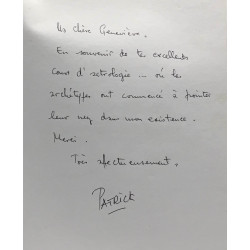 Ma chère Geneviève.
En souvenir de tes excellents
cours d'astrologie ... où les
archétypes ont commencé à pointer
leur nez dans mon existence.
Merci.
Très affectueusement.
PATRICK